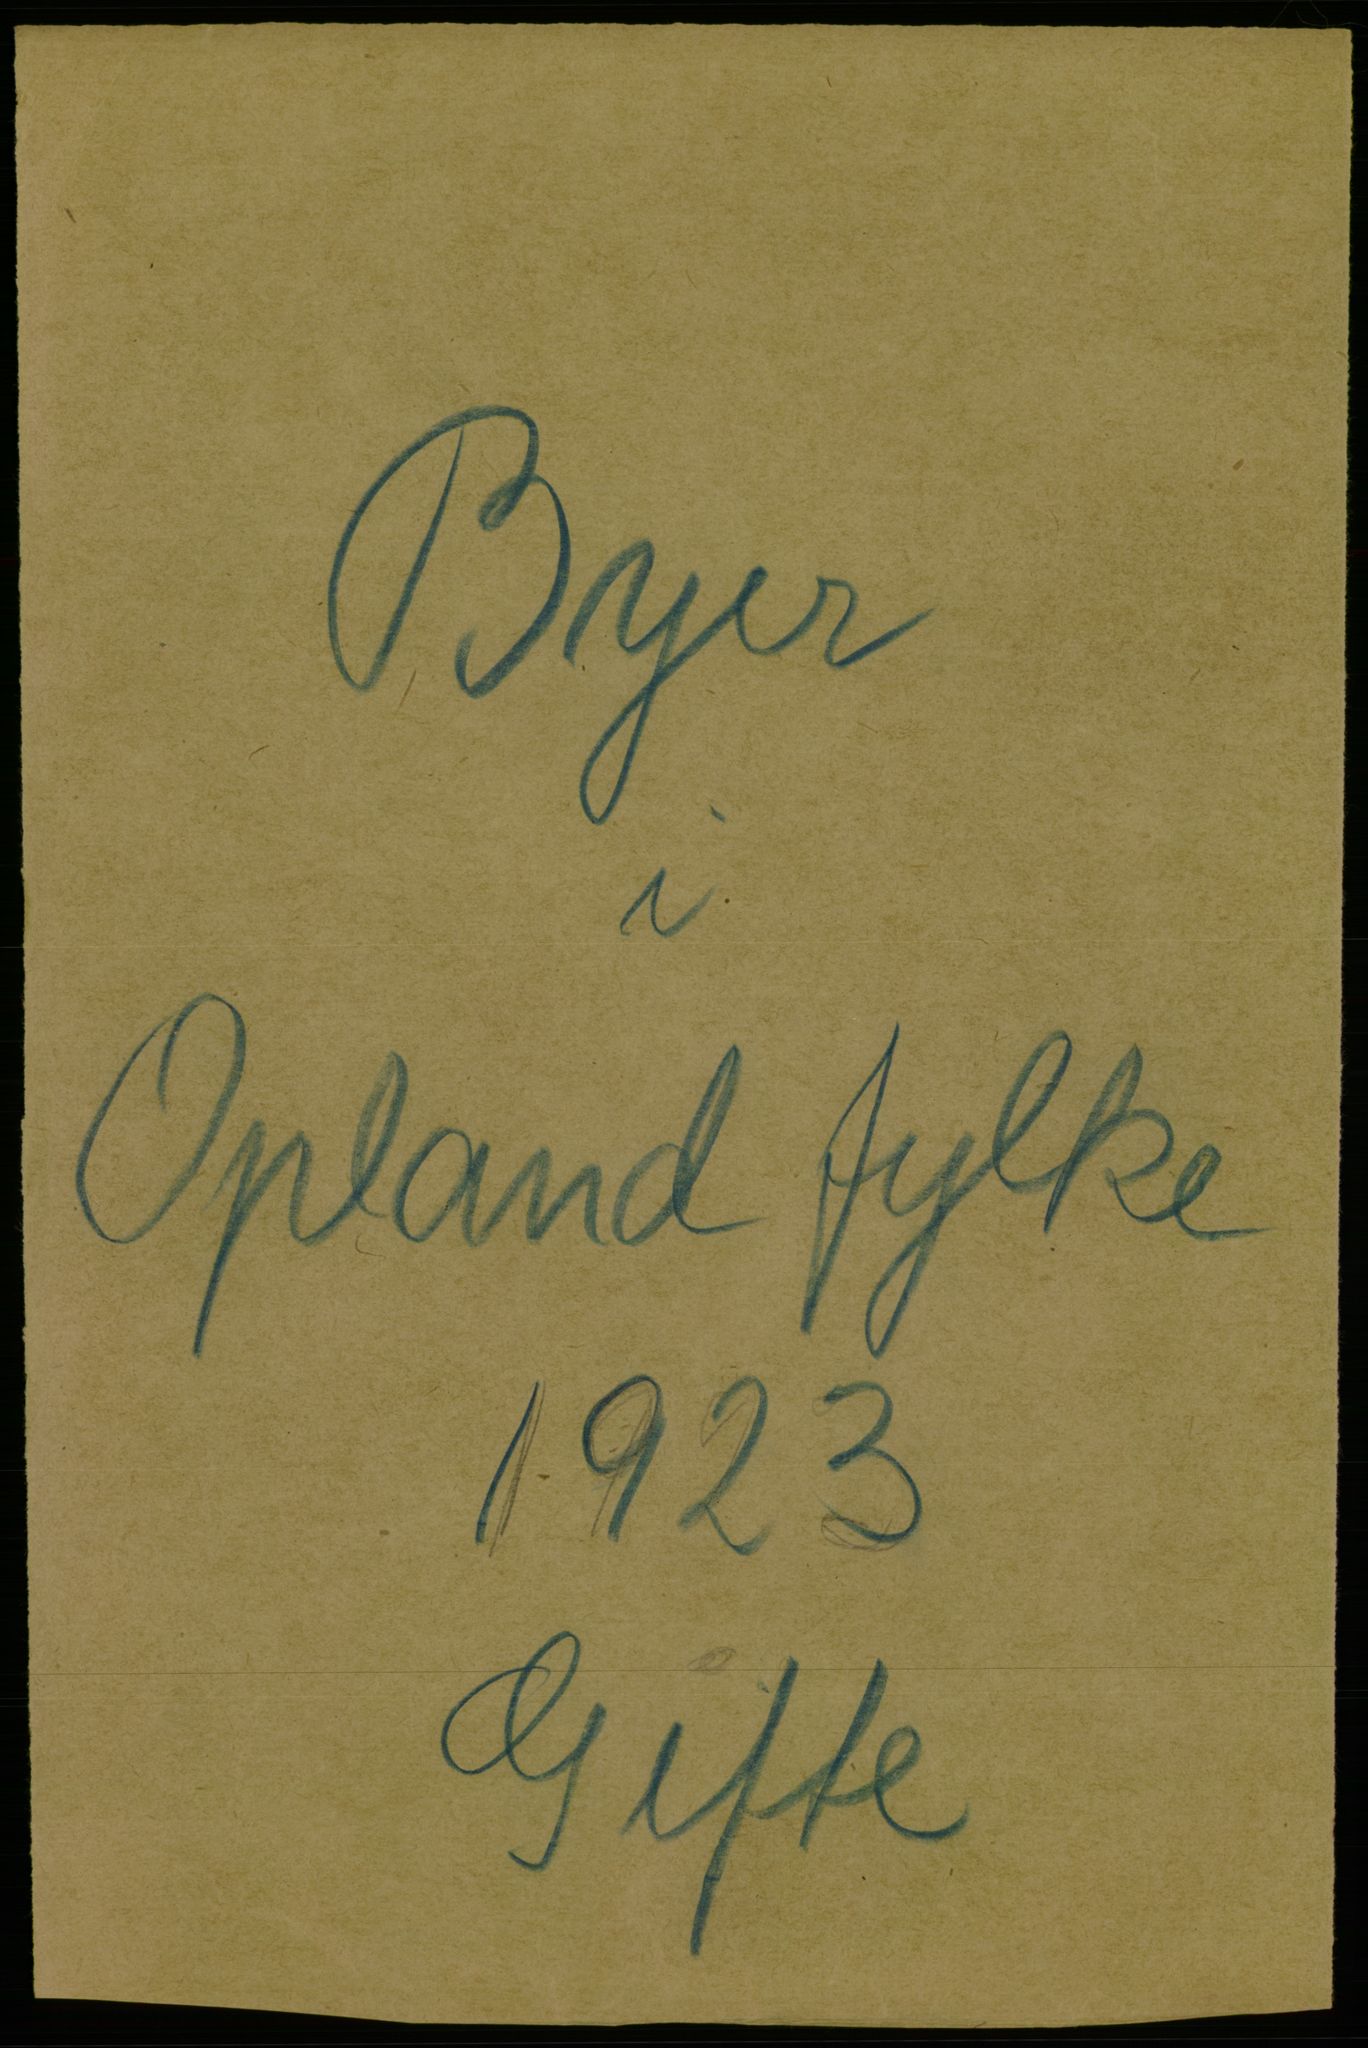 Byer
i
Opland fylke
1923
Gifte